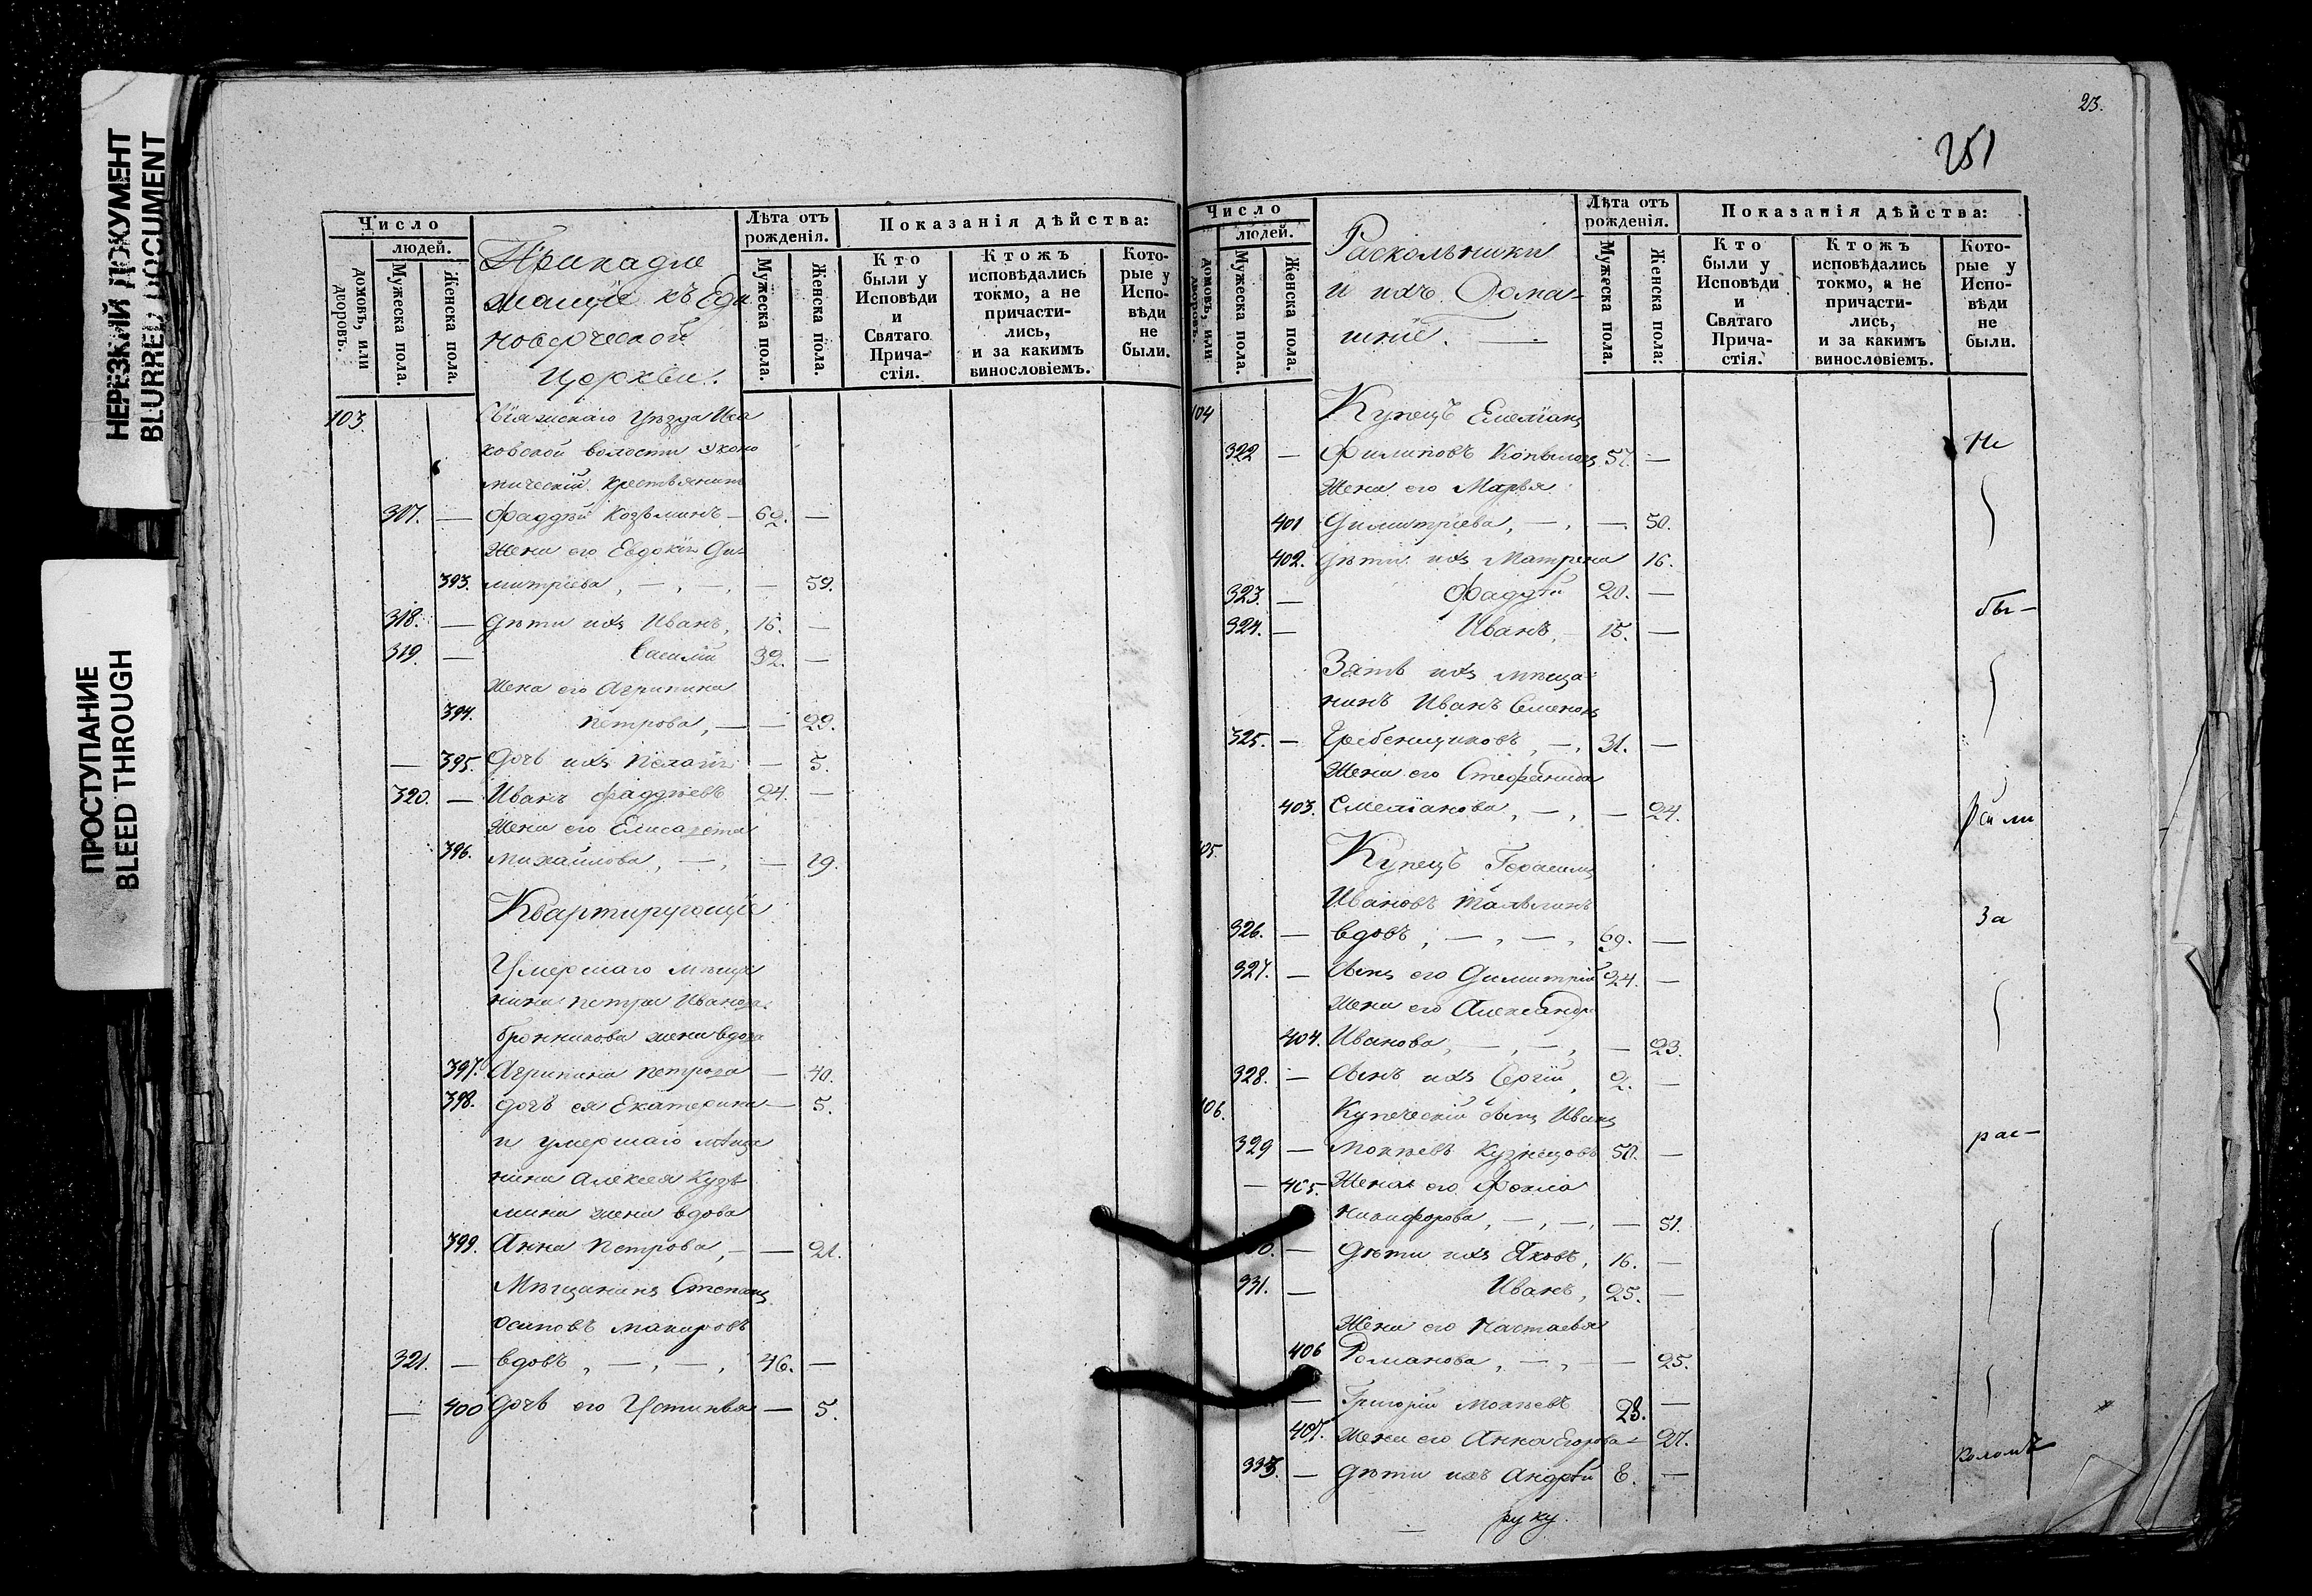 НЕРЕЗКИЙ ДОКУМЕНТ
BLURRED DOCUMENT
ПРОСТУПАНИЕ
BLEED THROUGH
Число
людей.
домовъ, или дворовъ.
Мужеска пола.
Женска пола.
Принадле
жащіе къ Еди
новѣрческой
Церкви.
Лѣта отъ рожденія.
Мужеска пола.
Женска пола.
Показанія дѣйства:
Кто были у Исповѣди и Святаго Прича- стія.
Ктожъ исповѣдались токмо, а не причасти- лись, и за какимъ винословіемъ.
Кото- рые у Испо- вѣди не были.
103. Свіяжскаго Уѣзда
ховской волости эконо
мическій крестьянинъ
317. — Фаддѣй Козьминъ — 62. —
Жена его Евдокія Ди-
393. митріева, — , — , — 59.
318. — Дѣти ихъ Иванъ, 16. —
319. — Василій 32. —
Жена его Агрипина
394. Петрова, — — 29.
— 395. Дочь ихъ Пелагія — 5.
320. — Иванъ Фаддѣевъ 24. —
Жена его Елисавета
396. Михайлова, — , — 19.
Квартирующіе
Умершаго мѣща
нина Петра Иванова
Бронникова жена вдова
397. Агрипина Петрова — 40.
398. дочь ея Екатерина — 5.
и умершаго мѣща
нина Алексея Кузь
мина жена вдова
399. Анна Петрова, — — 21.
Мѣщанинъ Степанъ
Осиповъ
321. — вдовъ, — , — , 46. —
— 400 Дочь его Устинья — 5.
23.
251
Число
людей.
домовъ, или дворовъ.
Мужеска пола.
Женска пола.
Раскольники
и ихъ Дома-
шніе. —
Лѣта отъ рожденія.
Мужеска пола.
Женска пола:
Показанія дѣйства:
Кто были у Исповѣди и Святаго Прича- стія.
Ктожъ исповѣдались токмо, а не причасти- лись, и за какимъ винословіемъ.
Кото- рые у Испо- вѣди не были.
104 Купецъ Емеліанъ
322 — Филиповъ Копыловъ 57. — Не
Жена его Марья
401 Димитріева, — , — 50.
402. Дѣти ихъ Матрена 16.
323. — Фаддѣй 20. —
бы-
324. — Иванъ, 15. —
Зять ихъ мѣща
нинъ Иванъ Семеновъ
325. — Гребенщиковъ, — , 31. —
Жена его Стефанида
403. Емеліанова, — , — 24.
ли
105. Купецъ Герасимъ
Ивановъ
326. — вдовъ, — , — , 69. —
За
327. — Сынъ его Димитрій 24. —
Жена его Александра
404. Иванова, — , — , — 23.
328. — Сынъ ихъ Сергій, 2. —
106. Купеческій сынъ Иванъ
329 — Мокѣевъ Кузнецовъ 50. —
рас-
— 405. Жена его Фекла
Никифорова, — , — , — 51.
— Дѣти ихъ Яковъ, 16. —
331. — Иванъ, 25. —
Жена его Настасья
406 Романова, — , — — 25.
— Григорій Мокѣевъ 28. —
407. Жена его Анна Егорова — 27.
коломъ
333. — Дѣти ихъ Андрей 6. —
руку